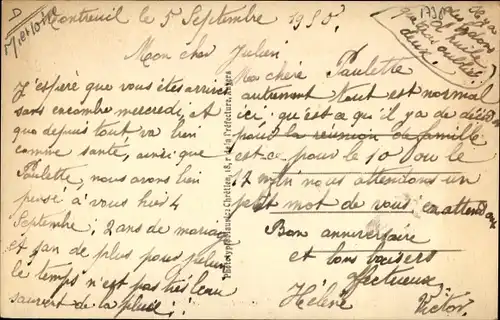 Montreuil le 5 Septembre 1950.
Mon cher Julien
Ma chère Paulette
J'espère que vous êtes arrivés
sans encombre mercredi, et
que depuis tout va bien
comme santé, ainsi que
Paulette, nous avons bien
pensé à vous
Septembre; 2 ans de mariage
et 1 an de plus pour Julien
le temps n'est pas très beau
souvent de la pluie!!
autrement tout est normal
ici; qu'est ce qu'il y a de décidé
pour la réunion de famille
est-ce pour le 10 ou le
17 nous attendons un
petit mot de vous en attendant
Bon anniversaire
et bons baisers
affectueux.
Hélène Victor.
Phototypie Maurice Chrétien, 18, r de la Préfecture, Angers